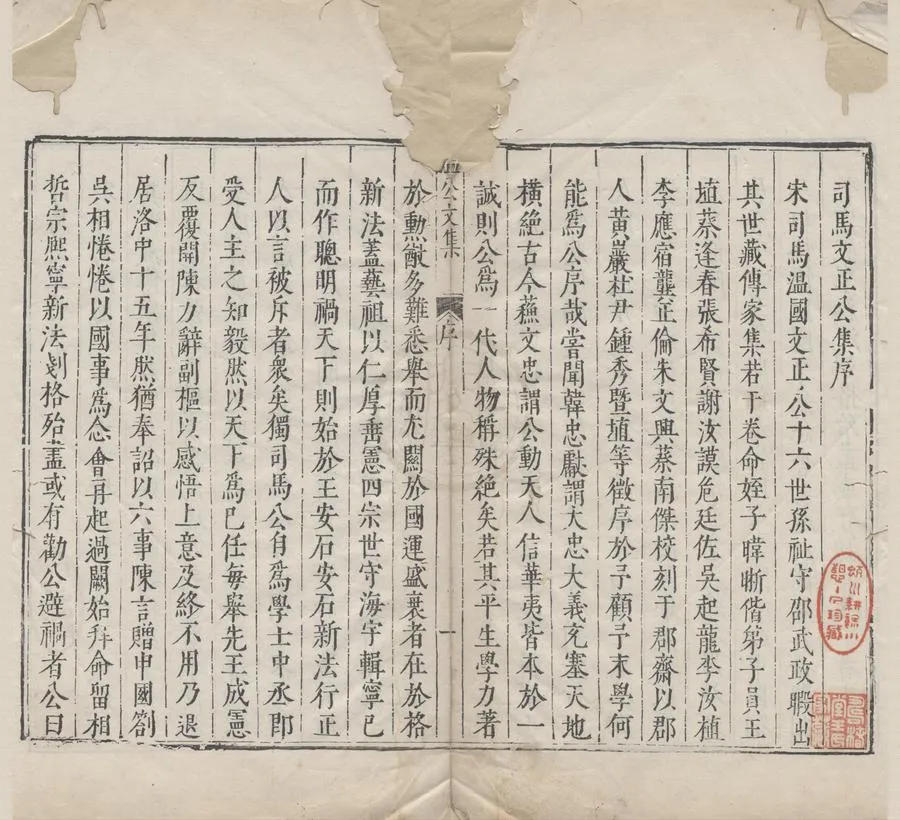 司馬文正公集序
宋司馬溫國文正公十六世孫祉守邵武政暇出
其世藏傳家集若干卷命姪子暐晣偕第子員王
埴蔡逢春張希賢謝汝謨危廷佐吳起龍李汝植
李應宿龔正倫朱文興蔡南傑校刻于郡齋以郡
人黃巖杜尹鍾秀暨埴等徵序於予顧予末學何
能爲公序哉嘗聞韓忠獻謂大忠大義充塞天地
橫絕古今蘇文忠謂公動天人信華夷皆本於一
誠則公爲一代人物稱殊絕矣若其平生學力著
公文集
序
一
於勲猷多難悉舉而尤關於國運盛衰者在於格
新法蓋藝祖以仁厚垂憲四宗世守海宇輯寧已
而作聰明禍天下則始於王安石安石新法行正
人以言被斥者衆矣獨司馬公自爲學士中丞即
受人主之知毅然以天下爲已任每舉先王成憲
反覆開陳力辭副樞以感悟上意及終不用乃退
居洛中十五年然猶奉詔以六事陳言贈申國劄
吳相惓惓以國事爲念會再起過闕始拜命留相
哲宗熈寧新法剗格殆盡或有勸公避禍者公曰